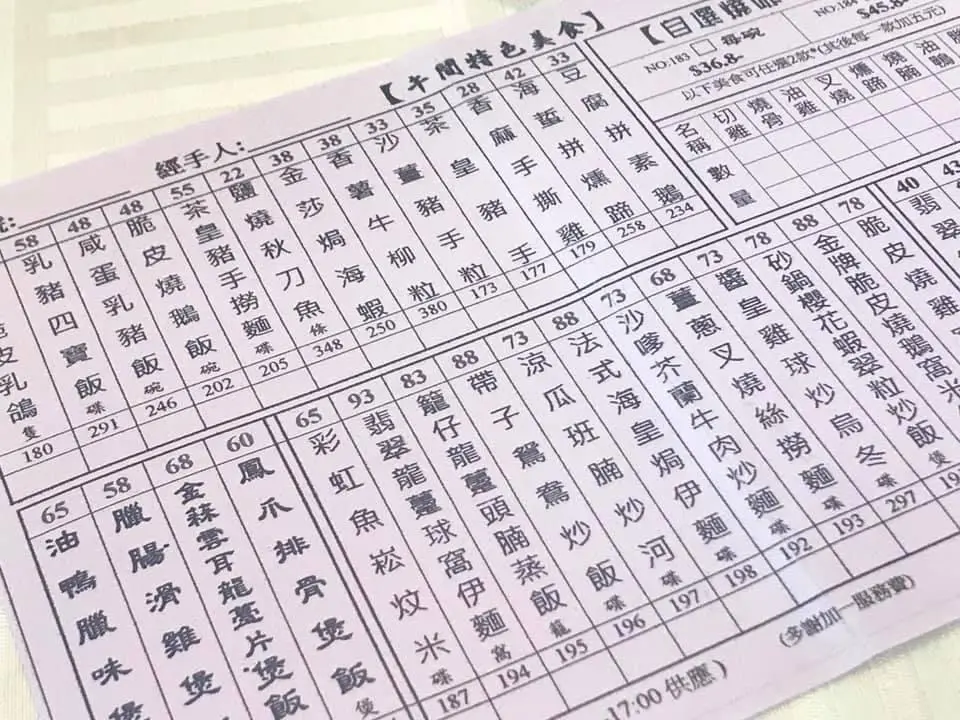 【午間特色美食】
經手人:
皮乳鴿 隻 180
58 乳豬四寶飯 碟 291
48 咸蛋乳豬飯 碗 246
48 脆皮燒鵝飯 碗 202
55 茶皇豬手撈麵 碟 205
22 鹽燒秋刀魚 條 348
38 金莎焗海蝦 250
38 香薯牛柳粒 380
33 沙薑豬手粒 173
35 茶皇豬手 177
28 香麻手撕雞 179
42 海蜇拼燻蹄 258
33 豆腐拼素鵝 234
【自選燒味
NO:183 □ 每碗
$36.8-
NO:184
$45.8-
以下美食可任擇2款*(其後每一款加五元)
名稱 切雞 燒骨 油雞 叉燒 燻蹄 燒腩 油鴨
數量
65 油鴨臘味煲
58 臘腸滑雞煲
68 金菇雲耳龍躉片煲飯
60 鳳爪排骨煲飯 煲
65 彩虹魚崧炆米 碟 187
93 翡翠龍躉球窩伊麵 窩 194
83 籠仔龍躉頭腩蒸飯 籠 195
88 帶子鴛鴦炒飯 碟 196
73 涼瓜班腩炒河 碟 197
88 法式海皇焗伊麵 碟 198
73 沙嗲芥蘭牛肉炒麵 碟 192
68 薑蔥叉燒絲撈麵 碟 193
73 醬皇雞球炒烏冬 碟 297
78 砂鍋櫻花蝦翠粒炒飯 煲
88 金牌脆皮燒鵝窩米
78 脆皮燒雞
40 翡翠
43
17:00 供應)
(多謝加一服務費)